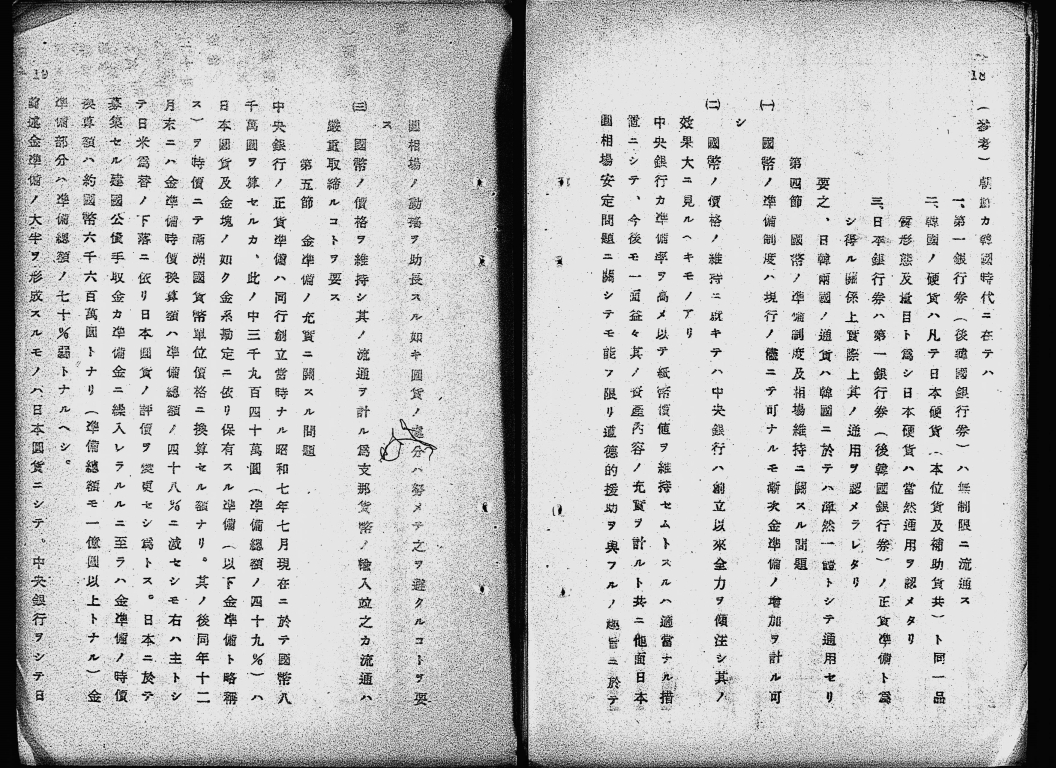 18
（參考）朝鮮カ韓國時代ニ在テハ
一、第一銀行券（後韓國銀行券）ハ無制限ニ流通ス
二、韓國ノ硬貨ハ凡テ日本硬貨（本位貨及補助貨共）ト同一品
質形態及量目ト爲シ日本硬貨ハ當然通用ヲ認メタリ
三、日本銀行券ハ第一銀行券（後韓國銀行券）ノ正貨準備ト爲
シ得ル關係上實際上其ノ通用ヲ認メラレタリ
要之、日韓兩國ノ通貨ハ韓國ニ於テハ渾然一體トシテ通用セリ
第四節　國幣ノ準備制度及相場維持ニ關スル問題
㈠　國幣ノ準備制度ハ現行ノ儘ニテ可ナルモ漸次金準備ノ增加ヲ計ル可
シ
㈡　國幣ノ價格ノ維持ニ就キテハ中央銀行ハ創立以來全力ヲ傾注シ其ノ
效果大ニ見ルヘキモノアリ
中央銀行カ準備率ヲ高メ以テ紙幣價値ヲ維持セムトスルハ適當ナル措
置ニシテ、今後モ一面益々其ノ資產內容ノ充實ヲ計ルト共ニ他面日本
圓相場安定問題ニ關シテモ能フ限リ道德的援助ヲ與フルノ趣旨ニ於テ
19
圓相場ノ動搖ヲ助長スル如キ圓貨ノ處分ハ努メテ之ヲ避クルコトヲ要
ス
㈢　國幣ノ價格ヲ維持シ其ノ流通ヲ計ル爲支那貨幣ノ輸入竝之カ流通ハ
嚴重取締ルコトヲ要ス
第五節　金準備ノ充實ニ關スル問題
中央銀行ノ正貨準備ハ同行創立當時ナル昭和七年七月現在ニ於テ國幣八
千萬圓ヲ算セルカ、此ノ中三千九百四十萬圓（準備總額ノ四十九％）ハ
日本國貨及金塊ノ如ク金系勘定ニ依リ保有スル準備（以下金準備ト略稱
ス）ヲ時價ニテ滿洲國貨幣單位價格ニ換算セル額ナリ。其ノ後同年十二
月末ニハ金準備時價換算額ハ準備總額ノ四十八％ニ減セシモ右ハ主トシ
テ日米爲替ノ下落ニ依リ日本圓貨ノ評價ヲ變更セシ爲トス。日本ニ於テ
募集セル建國公債手取金カ準備金ニ繰入レラルルニ至ラハ金準備ノ時價
換算額ハ約國幣六千六百萬圓トナリ（準備總額モ一億圓以上トナル）金
準備部分ハ準備總額ノ七十％弱トナルヘシ。
前述金準備ノ大半ヲ形成スルモノハ日本圓貨ニシテ。中央銀行ヲシテ日